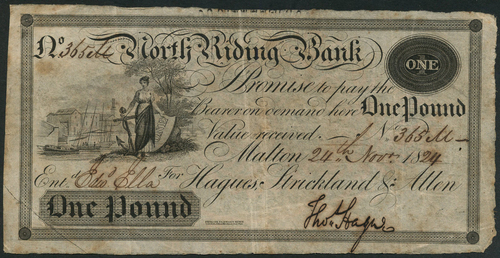 No. 365 M North Riding Bank
ONE
I Promise to pay the
Bearer on demand here One Pound
Value received. £ No. 365 M
Malton 24th Novr. 1824
Entd. Edwd Ella For Hague, Strickland & Allen
One Pound
Thos. Hague